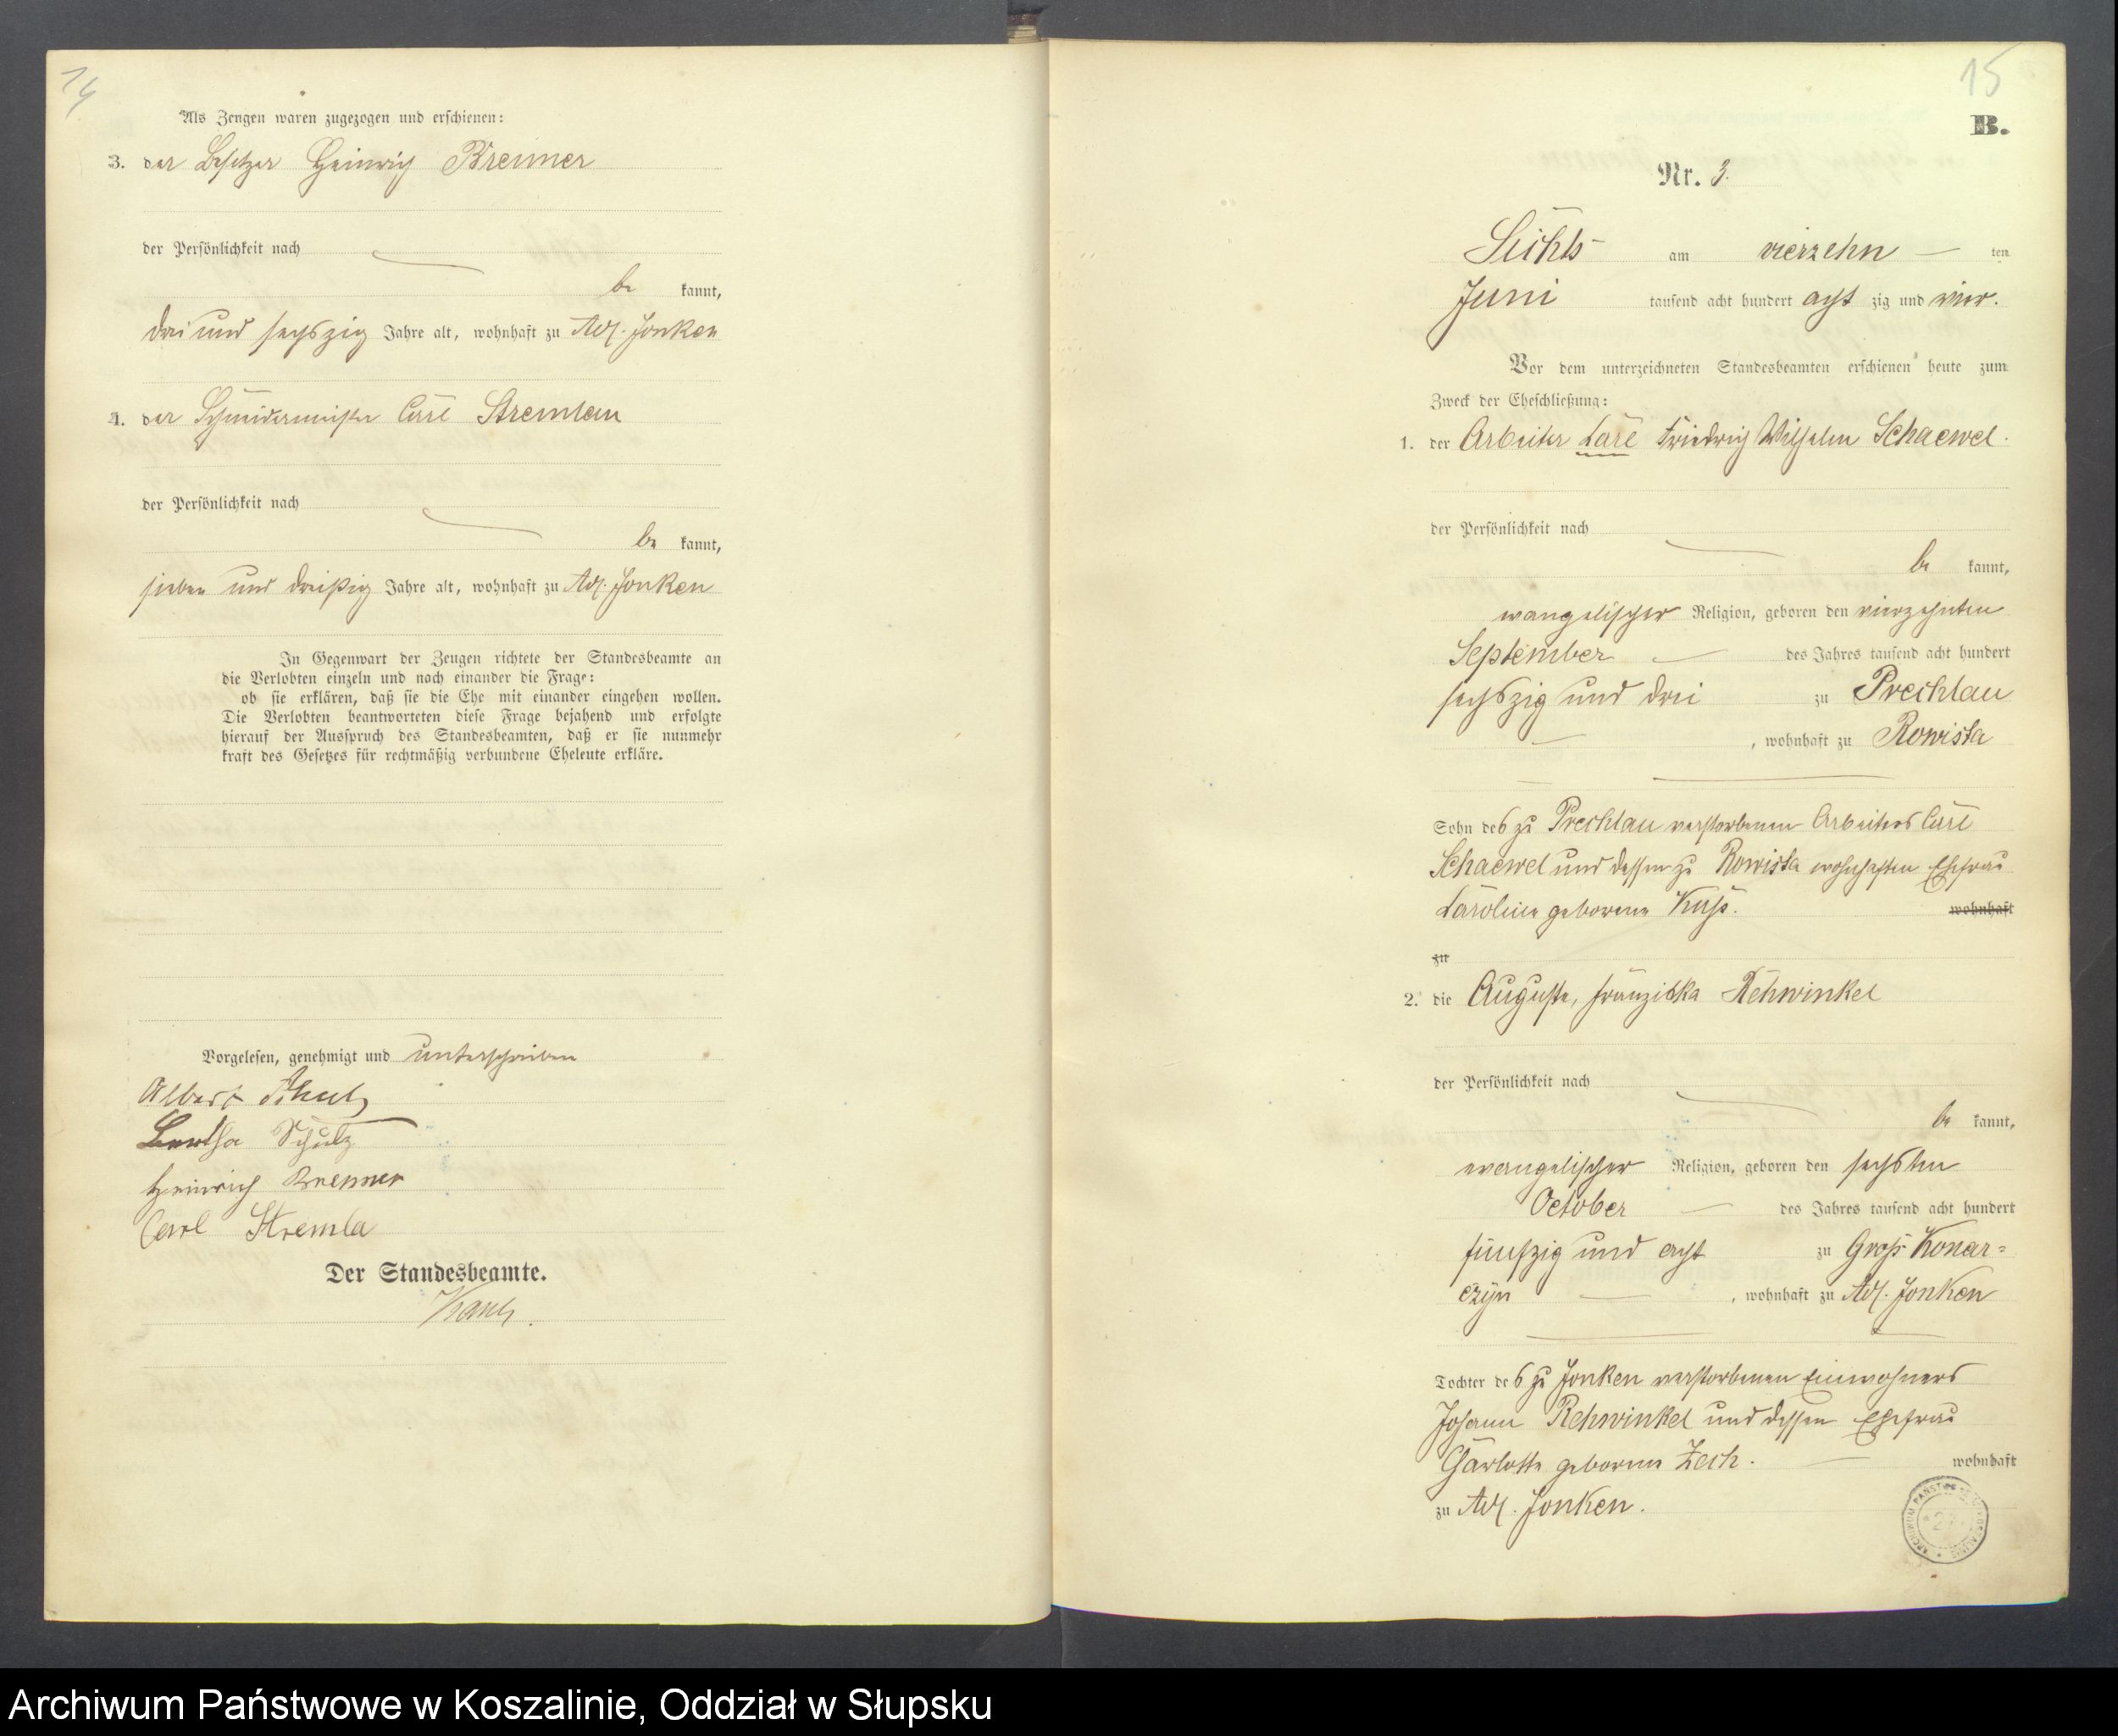 14
Als Zeugen waren zugezogen und erschienen:
3. der Besitzer Heinrich Bremer
der Persönlichkeit nach
be kannt,
drei und sechszig Jahre alt, wohnhaft zu Adl. Jonken
4. der Schneidermeister Carl Stremlau
der Persönlichkeit nach
be kannt,
sieben und dreißig Jahre alt, wohnhaft zu Adl. Jonken
In Gegenwart der Zeugen richtete der Standesbeamte an
die Verlobten einzeln und nach einander die Frage:
ob sie erklären, daß sie die Ehe mit einander eingehen wollen.
Die Verlobten beantworteten diese Frage bejahend und erfolgte
hierauf der Ausspruch des Standesbeamten, daß er sie nunmehr
kraft des Gesetzes für rechtmäßig verbundene Eheleute erkläre.
Vorgelesen, genehmigt und unterschrieben
Albert Schulz
Bertha Schulz
Heinrich Bremer
Carl Stremla
Der Standesbeamte.
15
B.
Nr. 3.
am vierzehn ten
Juni tausend acht hundert acht zig und vier.
Vor dem unterzeichneten Standesbeamten erschienen heute zum
Zweck der Eheschließung:
1. der Arbeiter Carl Friedrich Wilhelm Schaewel.
der Persönlichkeit nach
be kannt,
evangelischer Religion, geboren den vierzehnten
September des Jahres tausend acht hundert
sechszig und drei zu Prechlau
, wohnhaft zu Rowista
Sohn des zu Prechlau verstorbenen Arbeiters Carl
Schaewel und dessen zu Rowista wohnhaften Ehefrau
Caroline geborene Kuß. wohnhaft
zu
2. die Auguste, Franziska Rehwinkel
der Persönlichkeit nach
be kannt,
evangelischer Religion, geboren den sechsten
October des Jahres tausend acht hundert
fünfzig und acht zu Groß Konar=
czyn , wohnhaft zu Adl. Jonken
Tochter des zu Jonken verstorbenen Einwohners
Johann Rehwinkel und dessen Ehefrau
Charlotte geborene Zech. wohnhaft
zu Adl. Jonken.
Archiwum Państwowe w Koszalinie, Oddział w Słupsku